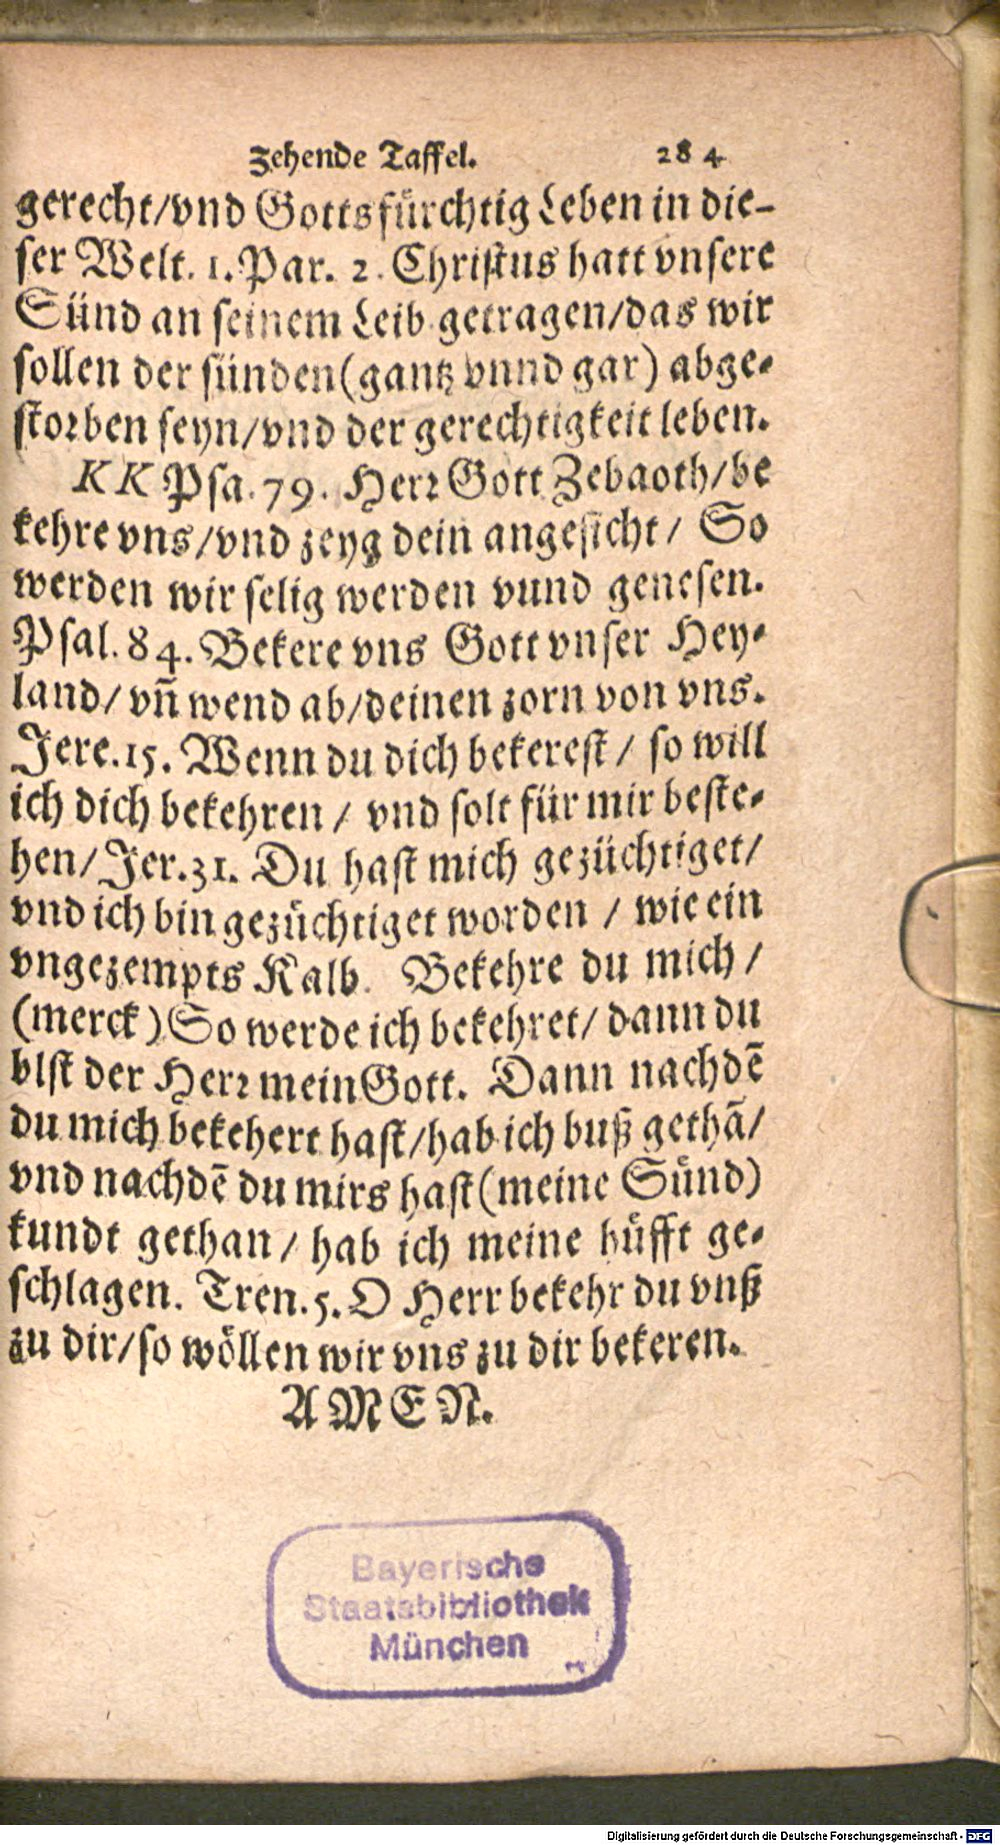 Zehende Taffel. 284
gerecht/vnd Gottsfürchtig Leben in die-
ser Welt. 1. Par. 2. Christus hatt vnsere
Sünd an seinem Leib getragen/das wir
sollen der sünden(gantz vnnd gar) abge-
storben seyn/vnd der gerechtigkeit leben.
KK Psa. 79. Herr Gott Zebaoth/be
kehre vns/vnd zeyg dein angesicht/ So
werden wir selig werden vund genesen.
Psal. 84. Bekere vns Gott vnser Hey-
land/ vñ wend ab/deinen zorn von vns.
Jere. 15. Wenn du dich bekerest / so will
ich dich bekehren / vnd solt für mir beste-
hen/ Jer. 31. Du hast mich gezüchtiget/
vnd ich bin gezüchtiget worden / wie ein
vngezempts Kalb. Bekehre du mich /
(merck) So werde ich bekehret/ dann du
blst der Herr mein Gott. Dann nachdē
du mich bekehert hast/hab ich buß gethā/
vnd nachdē du mirs hast(meine Sünd)
kundt gethan / hab ich meine hüfft ge-
schlagen. Tren. 5. O Herr bekehr du vnß
zu dir/so wöllen wir vns zu dir bekeren.
AMEN.
Bayerische
Staatsbibliothek
München
Digitalisierung gefördert durch die Deutsche Forschungsgemeinschaft - DFG